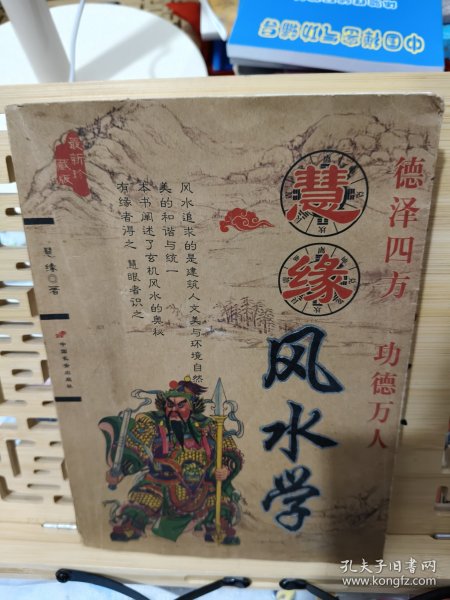 中国耕家与沙蟹台
德泽四方 功德万人
慧缘
风水学
风水追求的是建筑人文美与环境自然
美的和谐与统一
本书阐述了玄机风水的奥秘
有缘者得之 慧眼者识之
最新珍
藏版
慧缘 著
中国长安出版社
孔夫子旧书网
www.kongfz.com